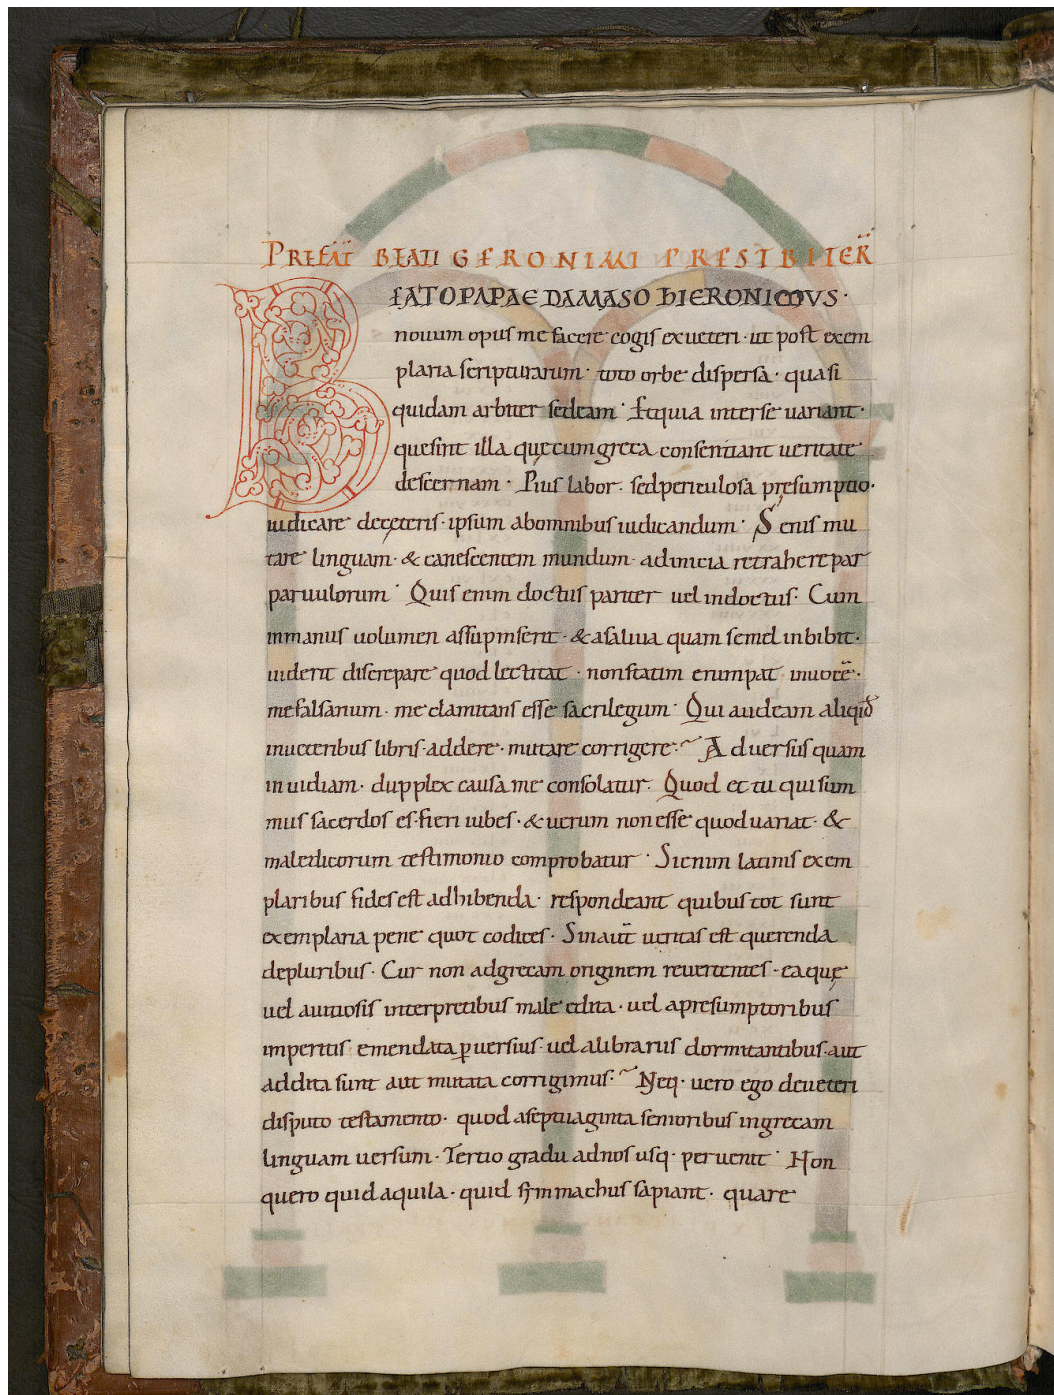 PREFAT BEATI GERONIMI PRESIBITER
BEATO PAPAE DAMASO HIERONICOVS·
nouum opus me facere cogis ex ueteri · ut post exem
plaria scripturarum · toto orbe dispersa · quasi
quidam arbiter sedeam · Et quia inter se uariant ·
que sint illa que cum greca consentiant ueritate
descernam · Pius labor · sed periculosa pręsumptio ·
iudicare de cęteris · ipsum ab omnibus iudicandum · Senis mu
tare linguam · & canescentem mundum · ad inicia retrahere par
paruulorum · Quis enim doctus pariter uel indoctus · Cum
inmanus uolumen assumpserit · & a saliua quam semel inbibit ·
uiderit discrepare quod lectitat · non statim erumpat in uocē ·
me falsarium · me clamitans esse sacrilegum · Qui audeam aliqid
in ueteribus libris · addere · mutare corrigere · Aduersus quam
inuidiam · dupplex causa me consolatur · Quod et tu qui sum
mus sacerdos es · fieri iubes · & uerum non esse quod uariat · &
maledicorum testimonio comprobatur · Si enim latinis exem
plaribus fides est adhibenda · respondeant quibus tot sunt
exemplaria pene quot codices · Sin aūt ueritas est querenda
de pluribus · Cur non ad grecam originem reuertentes · ea quę
uel a uitiosis interpretibus male edita · uel a presumptoribus
imperitis emendata puersius · uel a librariis dormitantibus · aut
addita sunt aut mutata corrigimus · Neq · uero ego de ueteri
disputo testamento · quod a septuaginta senioribus in grecam
linguam uersum · Tertio gradu ad nos usq · peruenit · Non
quero quid aquila · quid symmachus sapiant · quare